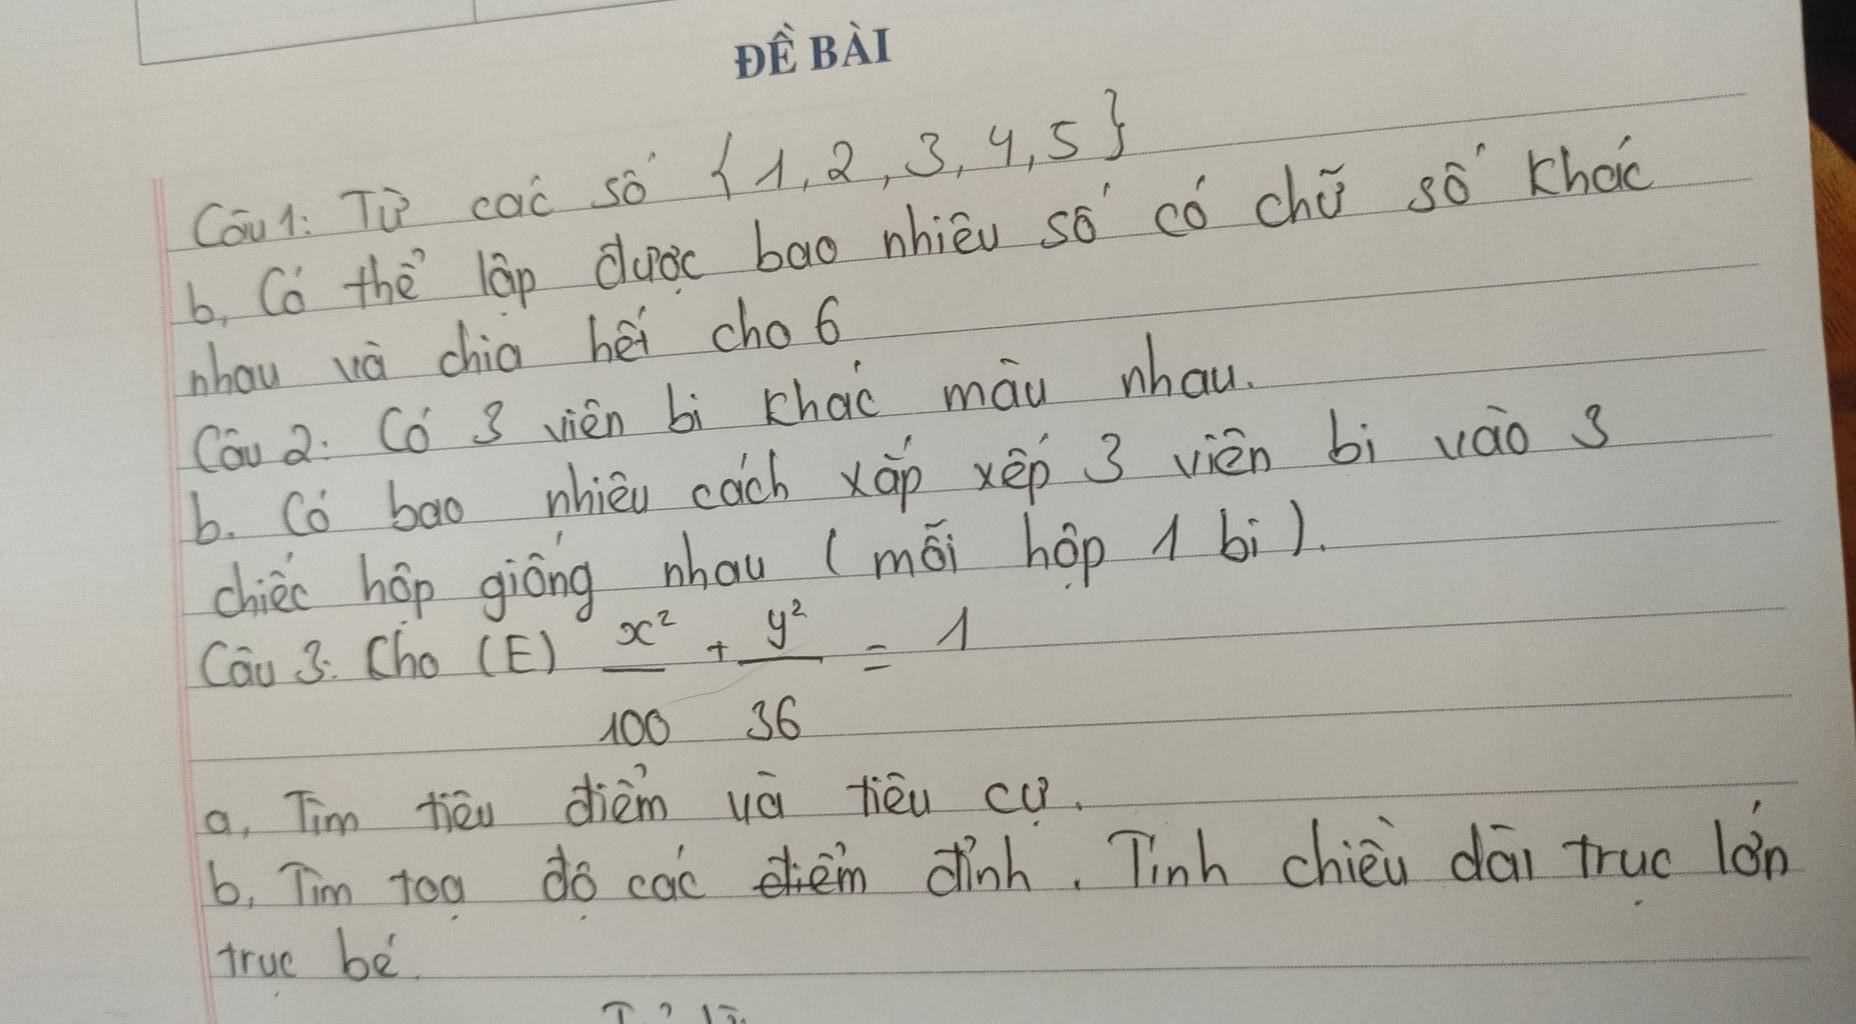 ĐỀ BÀI
Câu 1: Từ các số {1, 2, 3, 4, 5}
b, Có thể lập được bao nhiêu số có chữ số khác
nhau và chia hết cho 6
Câu 2: Có 3 viên bi khác màu nhau.
b. Có bao nhiêu cách xắp xếp 3 viên bi vào 3
chiếc hộp giống nhau (mỗi hộp 1 bi).
Câu 3. Cho (E) x²/100 + y²/36 = 1
a, Tìm tiêu điểm và tiêu cự.
b, Tìm toạ độ các điểm đỉnh. Tính chiều dài trục lớn
trục bé.